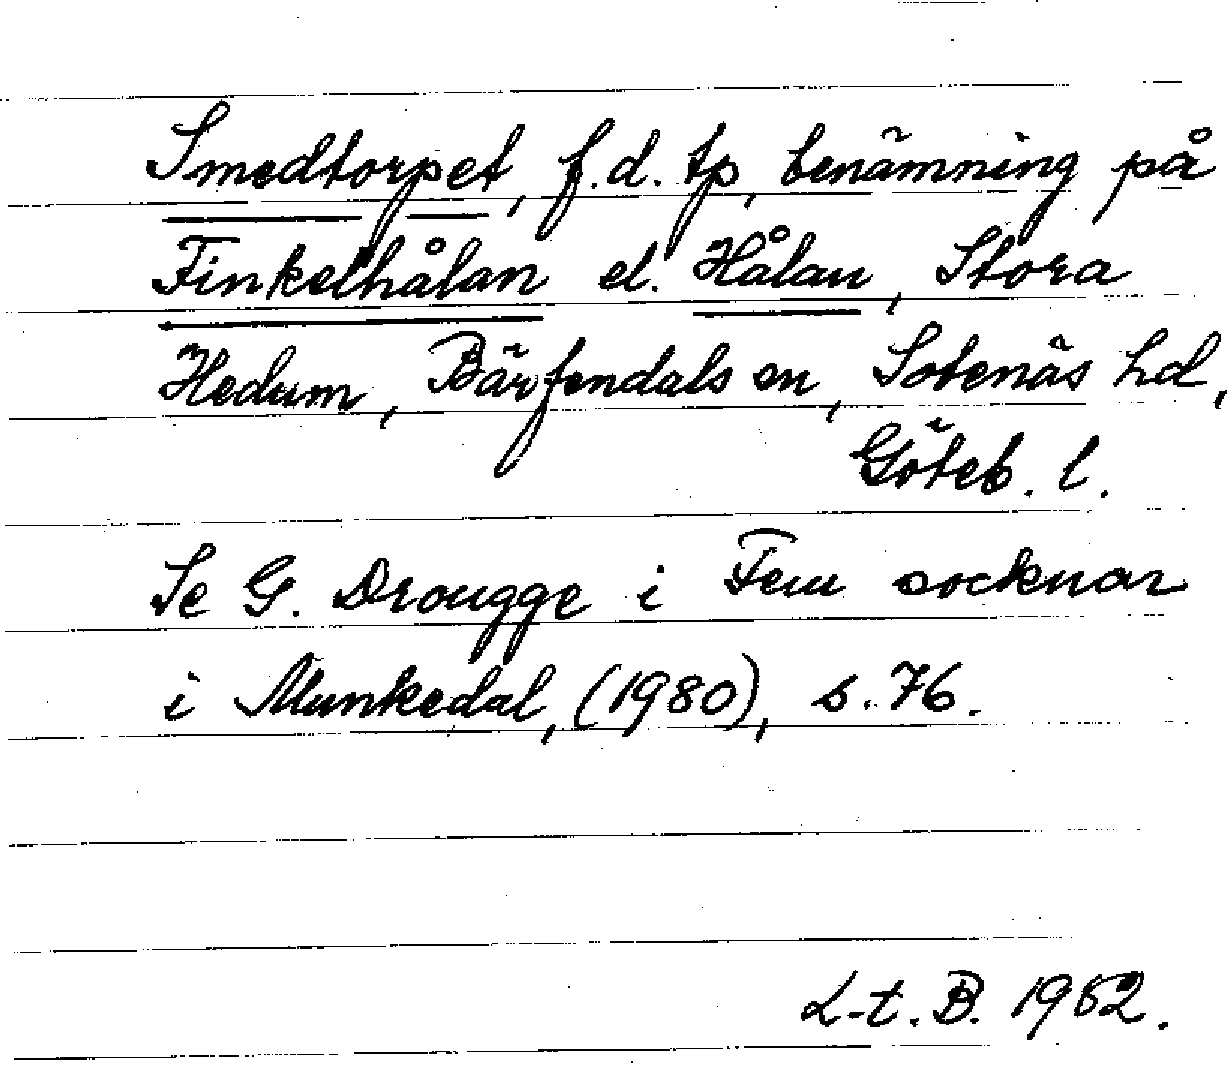 Smedtorpet, f.d. tp, benämning på
Finkelhålan el. Hålan, Stora
Hedum, Bärfendals sn, Sotenäs hd,
Göteb. l.
Se G. Drougge i Fem socknar
i Munkedal, (1980), s. 76.
L-t. B. 1982.